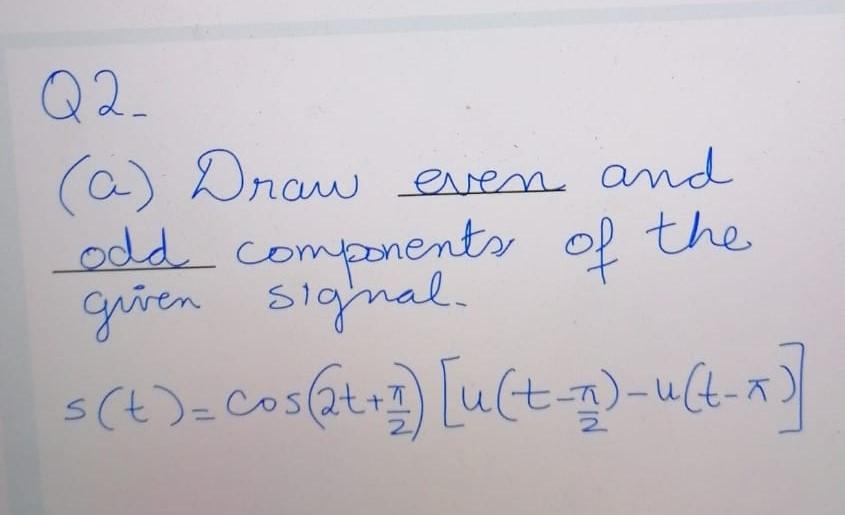 Q2-
(a) Draw even and
odd components of the
given signal.
s(t)=cos(2t+π/2)[u(t-π/2)-u(t-π)]